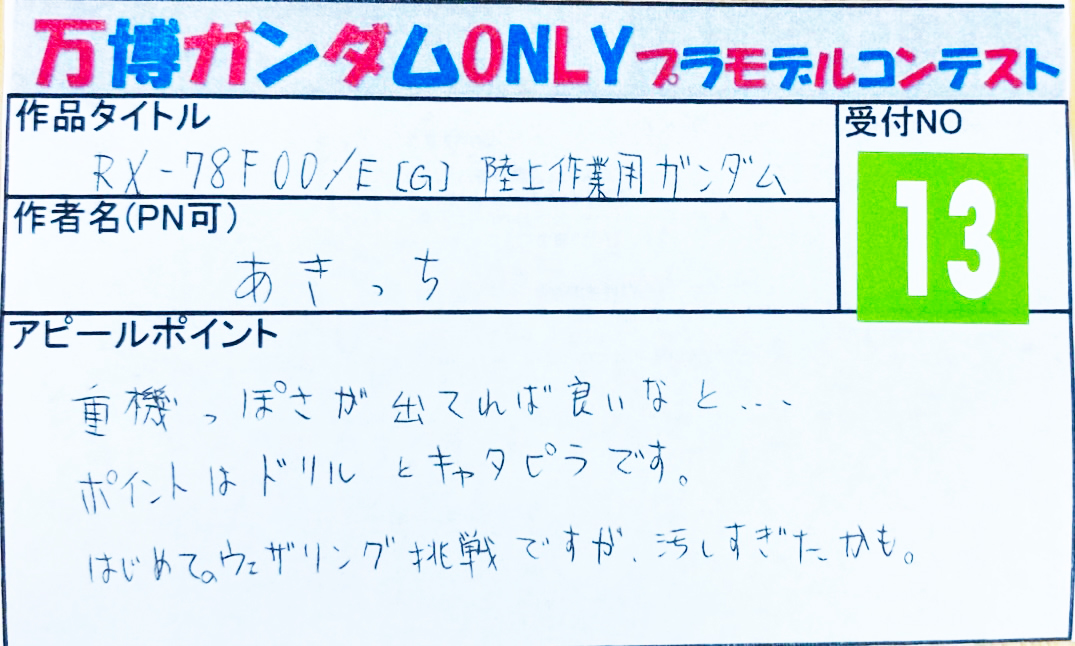 万博ガンダムONLYプラモデルコンテスト
作品タイトル
RX-78F00/E [G] 陸上作業用ガンダム
受付NO
13
作者名(PN可)
あきっち
アピールポイント
重機っぽさが出てれば良いなと...
ポイントはドリルとキャタピラです。
はじめてのウェザリング挑戦ですが、汚しすぎたかも。